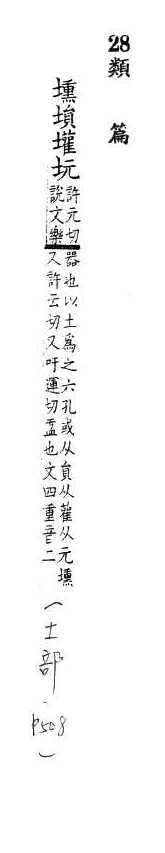 28 類篇
壎塤壦坃
許元切器也以土爲之六孔或从員从雚从元壎
說文樂又許云切又吁運切盂也文四重音二
(土部.
P508)